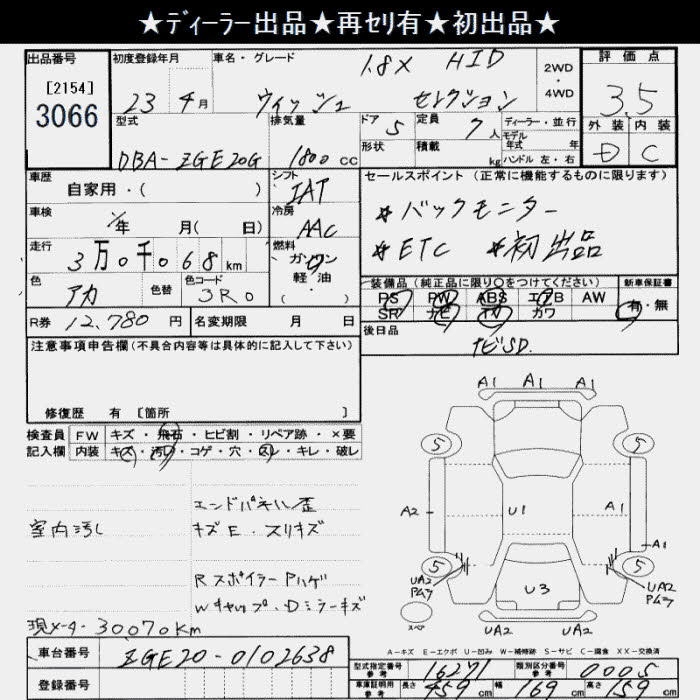 ★ディーラー出品★再セリ有★初出品★
出品番号 初度登録年月 車名・グレード 1.8X HID 2WD・4WD 評価点
[2154]
3066 23年4月 ウィッシュ セレクション 3.5
型式 排気量 ドア 5 定員 7人 ディーラー・並行 外装 内装
形状 積載 kg モデル年式 年
DBA-ZGE20G 1800cc ハンドル 左・右 D C
車歴 自家用・( ) シフト IAT セールスポイント (正常に機能するものに限ります)
車検 年 月( 日) 冷房 AAC ☆バックモニター
走行 3万0千068km 燃料 ガソリン 軽・油 ( ・ ) ☆ETC ☆初出品
色 アカ 色替 色コード 3R0 装備品 (純正品に限り○をつけてください) 新車保証書
PS PW ABS エアB AW 有・無
R券 12,780円 名変期限 月 日 SR ナビ TV カワ
注意事項申告欄 (不具合内容等は具体的に記入して下さい) 後日品 ナビSD.
修復歴 有 [箇所 ]
検査員 FW キズ・飛石・ヒビ割・リペア跡・×要
記入欄 内装 キズ・汚レ・コゲ・穴・スレ・キレ・破レ
エンドパネル歪
室内汚レ キズE・スリキズ
Rスポイラー Pハゲ
Wキャップ・Dミラーキズ
現メーター 30,070Km
A1 A1 A1
5 5
A2 U1 A1
A1
5 5
UA2 Pムラ U3 UA2 Pムラ
スペア UA2 UA2
A-キズ E-エクボ U-凹み W-補修跡 S-サビ C-腐食 XX-交換済
車台番号 ZGE20-0102638 型式指定番号 参考 16271 類別区分番号 参考 0005
登録番号 車庫証明用 参考 長さ 459cm 幅 169cm 高さ 159cm